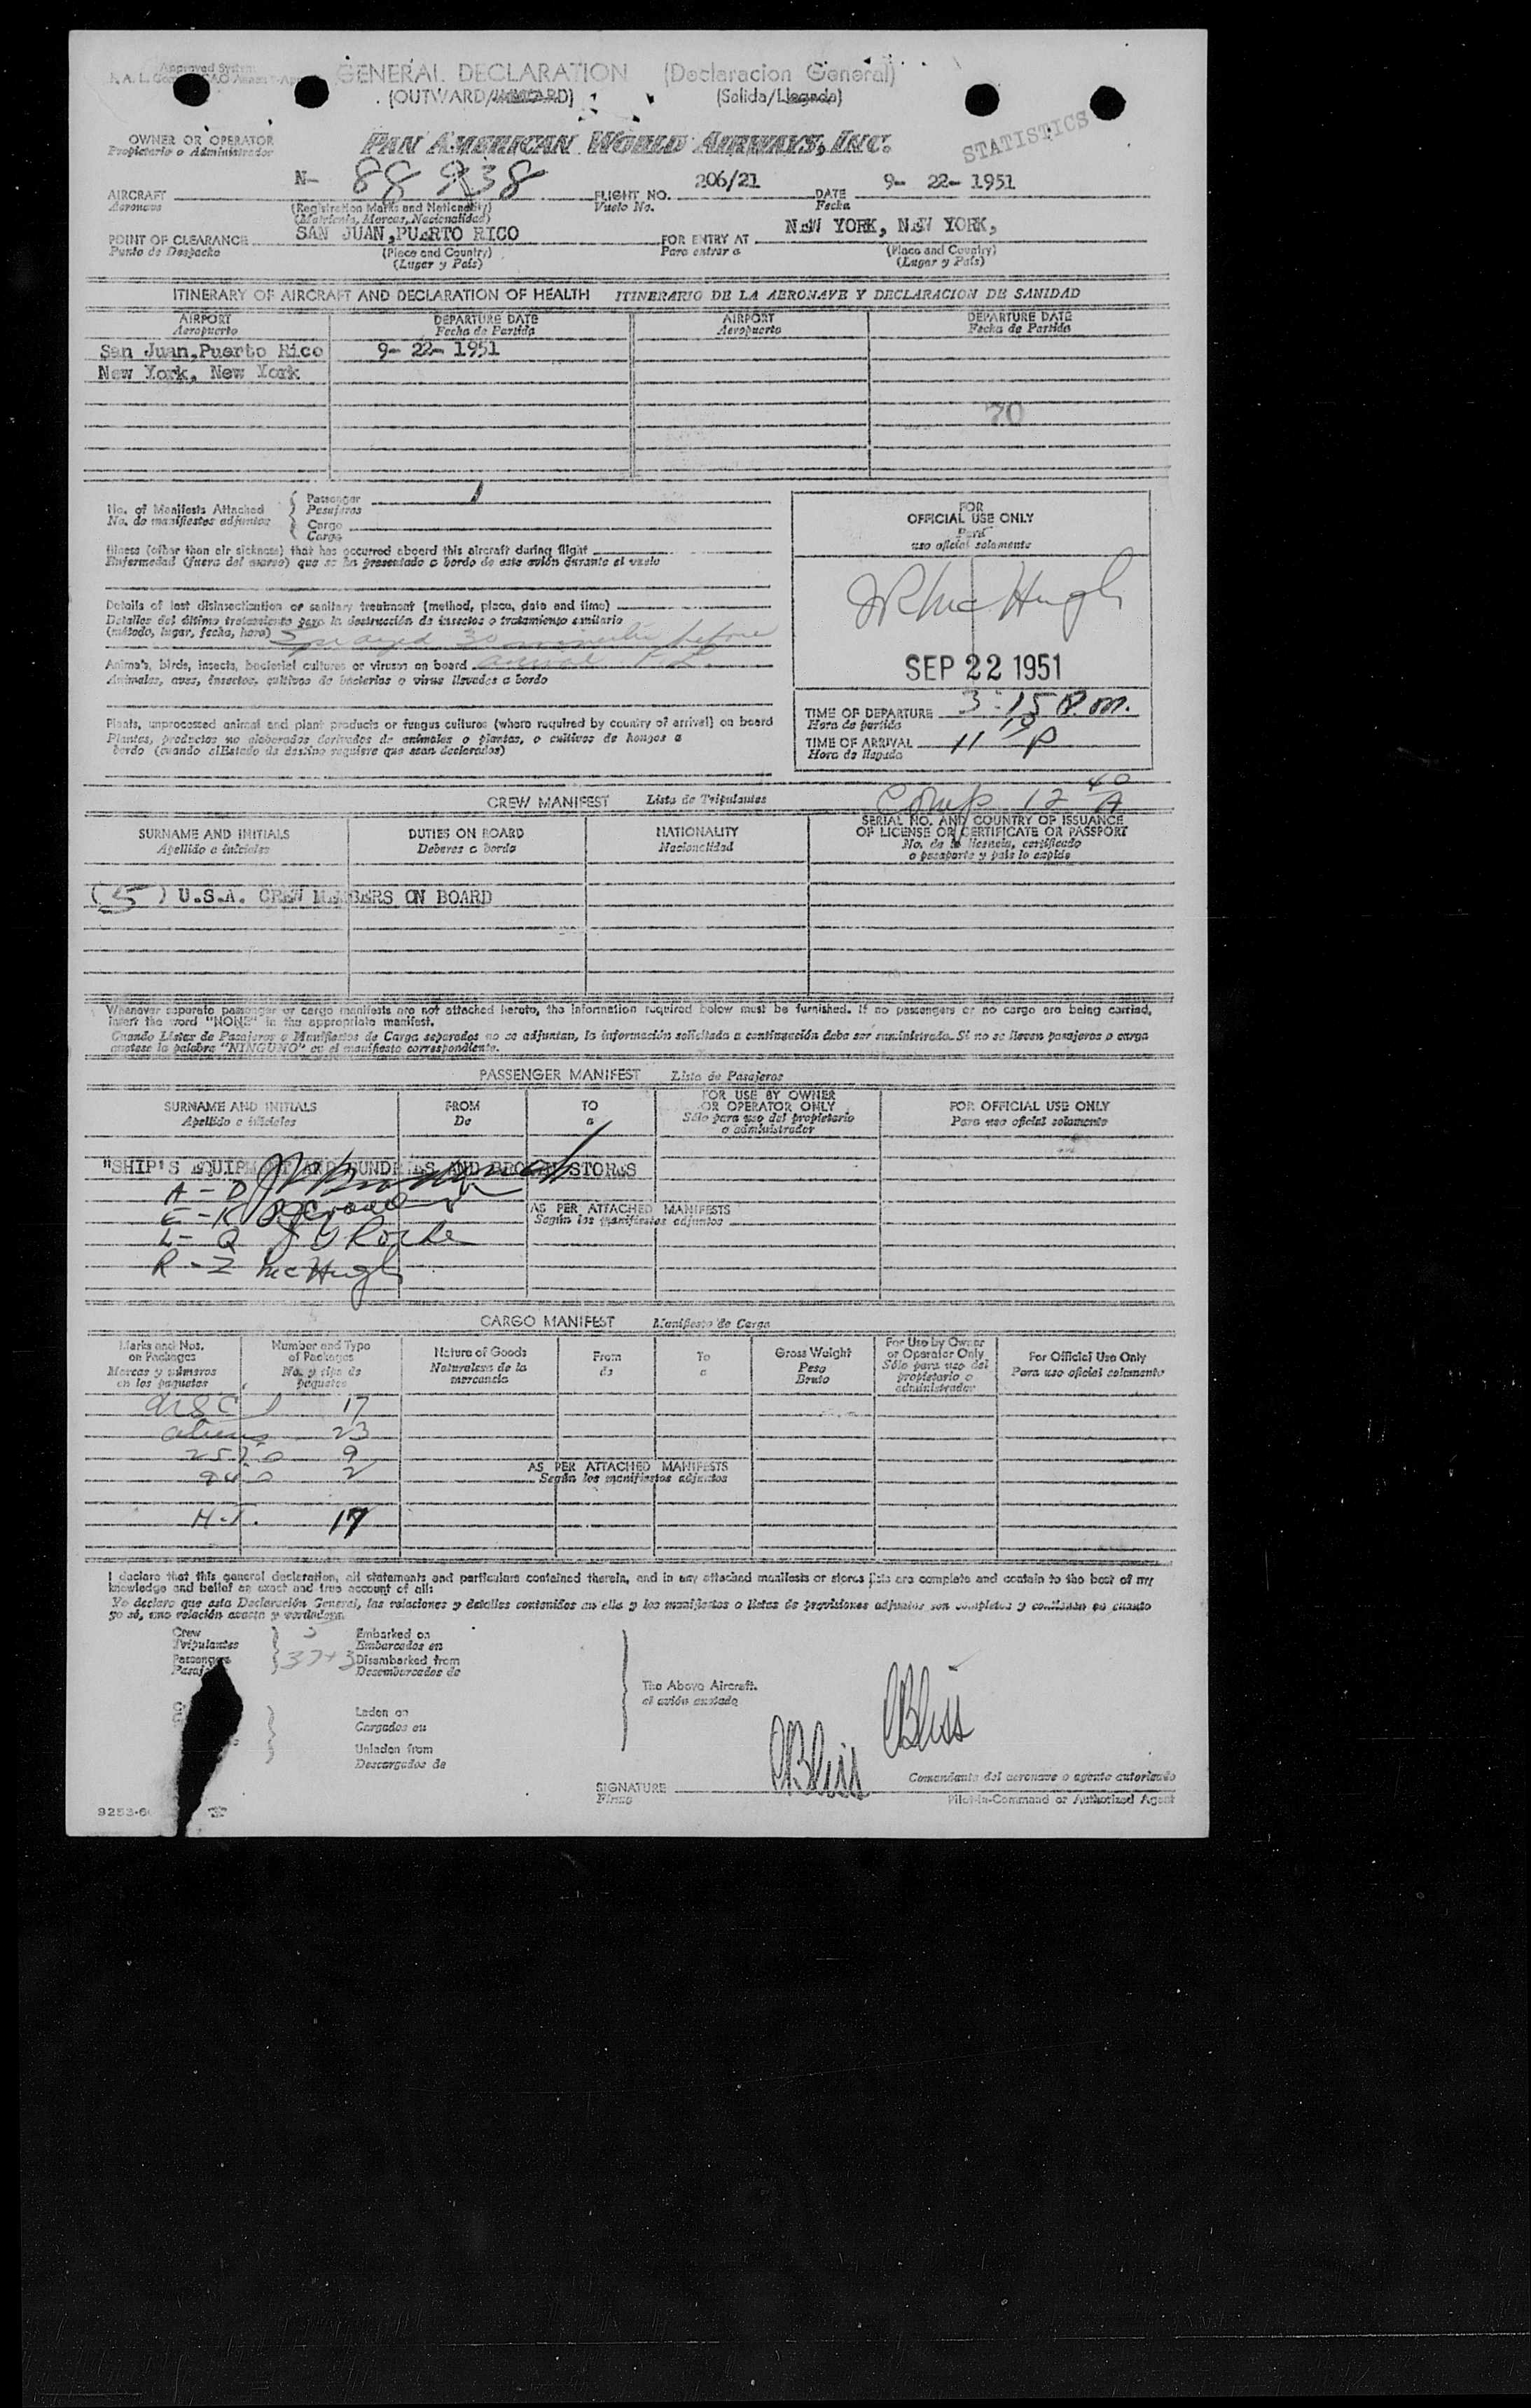 Approved System
GENERAL DECLARATION (Declaracion General)
(OUTWARD/INWARD) (Salida/Llegada)
STATISTICS
OWNER OR OPERATOR
Propietario o Administrador
PAN AMERICAN WORLD AIRWAYS, INC.
AIRCRAFT N- 88938 FLIGHT NO. 206/21 DATE 9- 22- 1951
Aeronave (Registration Marks and Nationality) Vuelo No. Fecha
(Matricula, Marcas, Nacionalidad)
POINT OF CLEARANCE SAN JUAN,PUERTO RICO FOR ENTRY AT NEW YORK, NEW YORK,
Punto de Despacho (Place and Country) Para entrar a (Place and Country)
(Lugar y País) (Lugar y País)
ITINERARY OF AIRCRAFT AND DECLARATION OF HEALTH ITINERARIO DE LA AERONAVE Y DECLARACION DE SANIDAD
AIRPORT DEPARTURE DATE AIRPORT DEPARTURE DATE
Aeropuerto Fecha de Partida Aeropuerto Fecha de Partida
San Juan,Puerto Rico 9- 22- 1951
New York, New York
70
No. of Manifests Attached Passenger 1
No. de manifiestos adjuntos Pasajeros
Cargo
Carga
Illness (other than air sickness) that has occurred aboard this aircraft during flight
Enfermedad (fuera del mareo) que se ha presentado a bordo de este avión durante el vuelo
Details of last disinsectization or sanitary treatment (method, place, date and time)
Detalles del último tratamiento para la destrucción de insectos o tratamiento sanitario
(método, lugar, fecha, hora) Sprayed 30 minutes before
Animals, birds, insects, bacterial cultures or viruses on board arrival
Animales, aves, insectos, cultivos de bacterias o virus llevados a bordo
Plants, unprocessed animal and plant products or fungus cultures (where required by country of arrival) on board
Plantas, productos no elaborados derivados de animales o plantas, o cultivos de hongos a
bordo (cuando el Estado de destino requiere que sean declarados)
FOR
OFFICIAL USE ONLY
Para
uso oficial solamente
JR McHugh
SEP 22 1951
TIME OF DEPARTURE 3:15 P.m.
Hora de partida
TIME OF ARRIVAL 11 10 P
Hora de llegada
Comp 12 40 A
CREW MANIFEST Lista de Tripulantes
SURNAME AND INITIALS DUTIES ON BOARD NATIONALITY SERIAL NO. AND COUNTRY OF ISSUANCE
OF LICENSE OR CERTIFICATE OR PASSPORT
Apellido e iniciales Deberes a bordo Nacionalidad No. de la licencia, certificado
o pasaporte y país lo expide
(5) U.S.A. CREW MEMBERS ON BOARD
Whenever separate passenger or cargo manifests are not attached hereto, the information required below must be furnished. If no passengers or no cargo are being carried,
insert the word "NONE" in the appropriate manifest.
Cuando Listas de Pasajeros o Manifiestos de Carga separados no se adjuntan, la información solicitada a continuación debe ser suministrada. Si no se llevan pasajeros o carga
anótese la palabra "NINGUNO" en el manifiesto correspondiente.
PASSENGER MANIFEST Lista de Pasajeros
SURNAME AND INITIALS FROM TO FOR USE BY OWNER
OR OPERATOR ONLY FOR OFFICIAL USE ONLY
Apellido e iniciales De a Sólo para uso del propietario
o administrador Para uso oficial solamente
"SHIP'S EQUIPMENT AND SUNDRIES AND STORES
A - D
E - K
L - Q J Roche
R - Z McHugh
AS PER ATTACHED MANIFESTS
Según los manifiestos adjuntos
CARGO MANIFEST Manifiesto de Carga
Marks and Nos.
on Packages
Marcas y números
en los paquetes
Number and Type
of Packages
No. y tipo de
paquetes
Nature of Goods
Naturaleza de la
mercancía
From
de
To
a
Gross Weight
Peso
Bruto
For Use by Owner
or Operator Only
Sólo para uso del
propietario o
administrador
For Official Use Only
Para uso oficial solamente
17
aliens 23
9
2
AS PER ATTACHED MANIFESTS
Según los manifiestos adjuntos
H.T. 17
I declare that this general declaration, all statements and particulars contained therein, and in any attached manifests or stores lists are complete and contain to the best of my
knowledge and belief an exact and true account of all:
Yo declaro que esta Declaración General, las relaciones y detalles contenidos en ella y los manifiestos o listas de provisiones adjuntos son completos y contienen en cuanto
yo sé, una relación exacta y verdadera
Crew 5 Embarked on
Tripulantes Embarcados en
Passengers 37+3 Disembarked from
Desembarcados de
The Above Aircraft.
el avión anotado
Laden on
Cargados en
Unladen from
Descargados de
CBliss
CBliss
Comandante del aeronave o agente autorizado
SIGNATURE
Firma Pilot-in-Command or Authorized Agent